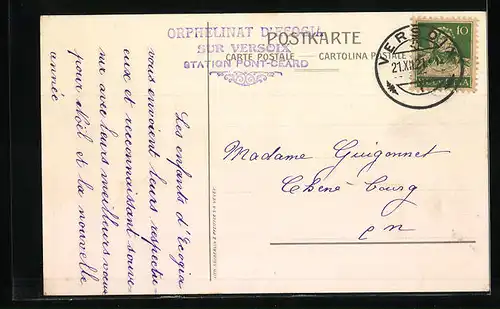 ORPHELINAT D'ECOGIA
SUR VERSOIX
STATION PONT-CEARD
POSTKARTE
CARTE POSTALE CARTOLINA POSTALE
VERSOIX
21.XII.21
10
HELVETIA
Les enfants d'Ecogia
vous envoient leurs respectu-
eux et reconnaissant souve-
nir avec leurs meilleurs vœux
pour Noël et la nouvelle
année
Madame Guigonnet
Chêne-Bourg